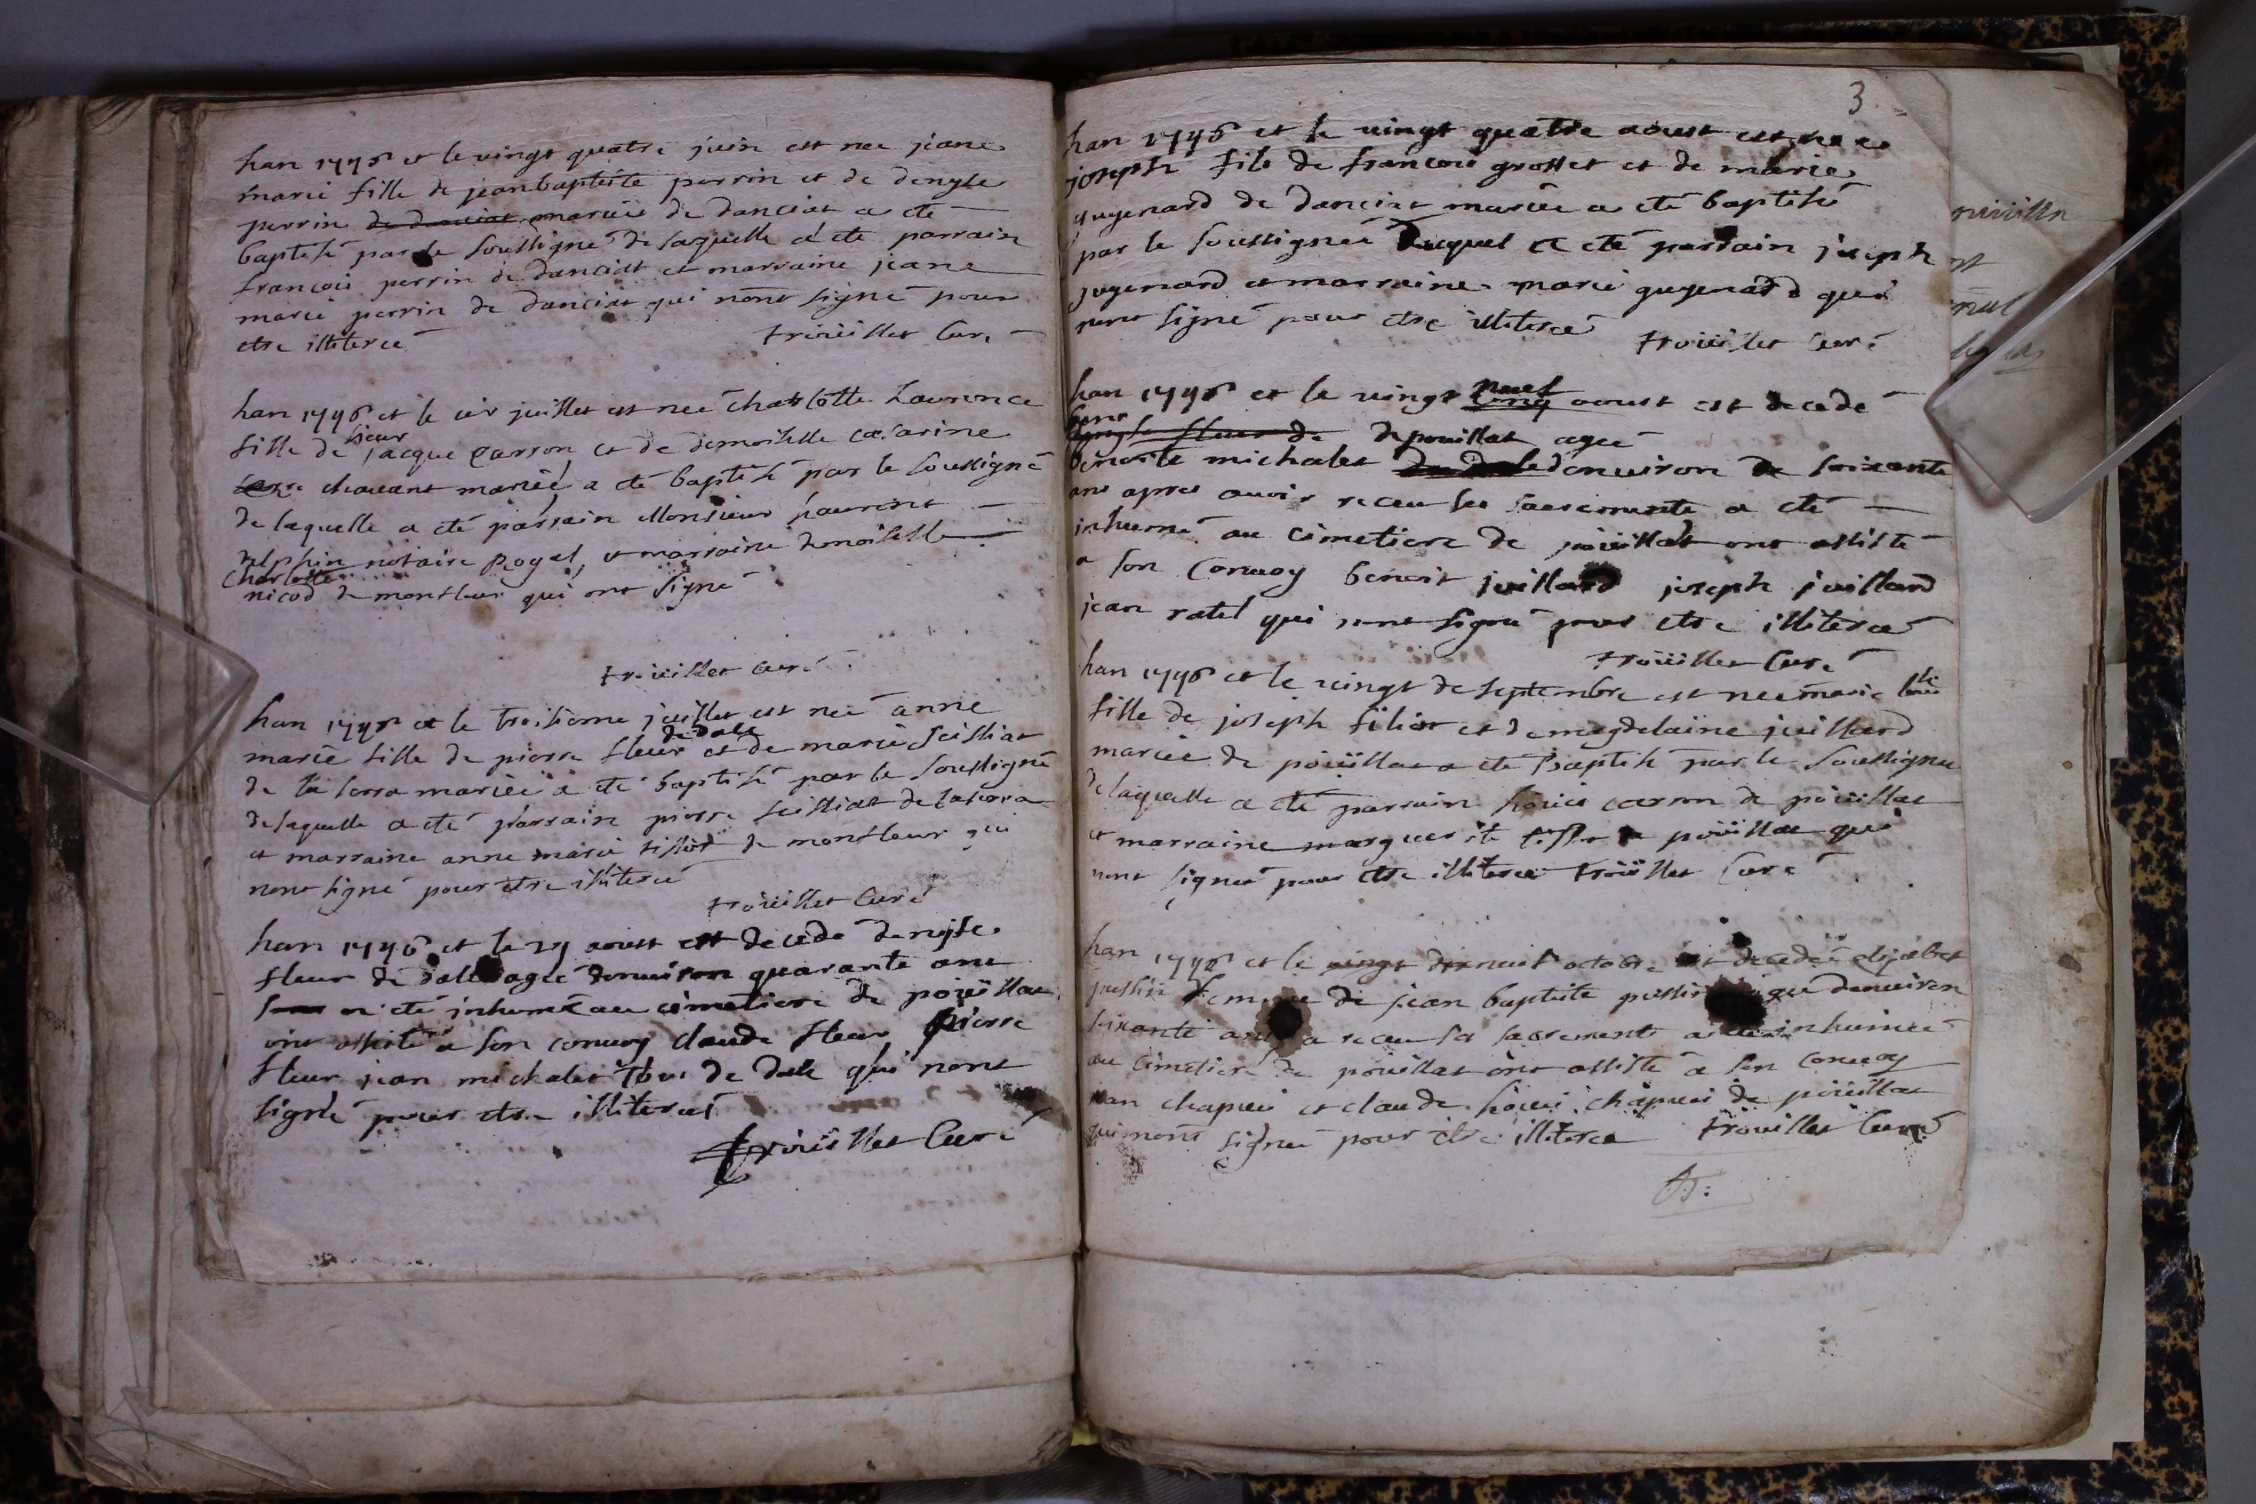 han 1746 et le vingt quatre juin est nee jeane
marie fille de jean baptiste perrin et de denyse
perrin de danciat mariés de danciat a eté
baptisé par le soussigné de laquelle a eté parrain
francois perrin de danciat et marraine jeane
marie perrin de danciat qui nont signé pour
etre illiteré trouillet Curé
han 1746 et le juillet est neé charlotte Laurence
fille de sieur jacque carron et de demoiselle catarine
chavant mariéé a eté baptisé par le soussigné
de laquelle a eté parrain Monsieur laurent
delphin notaire Royal, et marraine demoiselle
Charlotte
nicod de montfleur qui ont signé
trouillet curé
han 1746 et le troisieme juillet est neé anne
marie fille de pierre fleur de dale et de marie
de la serra mariéé a eté baptisé par le soussigné
de laquelle a eté parrain pierre de laserra
et marraine anne marie de montfleur qui
nont signé pour etre illiteré
trouillet Curé
han 1746 et le 27 aoust est decedé denyse
fleur de dale ageé denuiron quarante ans
a eté inhumé au cimetiere de pouillat
ont assisté a son conuoy claude fleur pierre
fleur jean michalet tous de dale qui nont
signé pour etre illiteré
trouillet Curé
3
han 1746 et le vingt quatre aoust est ne
joseph fils de francois grosset et de marie
guyenard de danciat marieé a eté baptisé
par le soussigneé duquel a eté parrain joseph
guyenard et marraine marie guyenard qui
nont signé pour etre illiteré
trouillet Curé
han 1746 et le vingt neuf cinq aoust est decedé
fleur de de pouillat ageé
benoite michalet denuiron de soixante
ans apres auoir receu ses sacrements a eté
inhumé au cimetiere de pouillat ont assisté
a son conuoy benoit juillard joseph juillard
jean ratel qui nont signé pour etre illiteré
trouillet Curé
han 1746 et le vingt de septembre est nee marie
fille de joseph et de magdelaine juillard
marieé de pouillat a eté baptisé par le soussigné
de laquelle a eté parrain louis carron de pouillat
et marraine marguerite pouillat qui
nont signé pour etre illiteré trouillet Curé
han 1746 et le vingt dixneuf octobre est decedeé elizabet
femme de jean baptiste ageé denuiron
sixante ans a receu ses sacrement a eté inhumeé
au cimetiere de pouillat ont assisté a son conuoy
jean chapuis et claude louis chapuis de pouillat
qui nont signé pour etre illiteré trouillet Curé